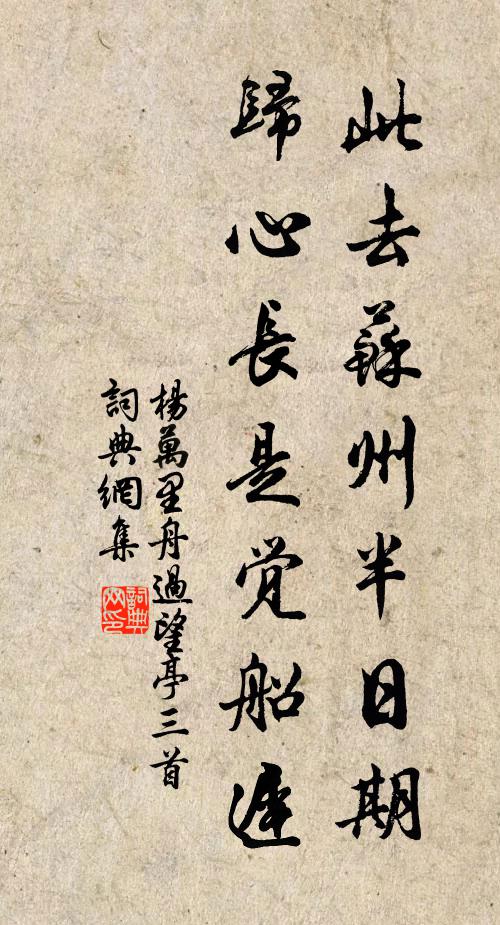 此去蘇州半日期
歸心長是觉船遲
楊萬里舟過望亭三首
詞典網集
詞典
网印